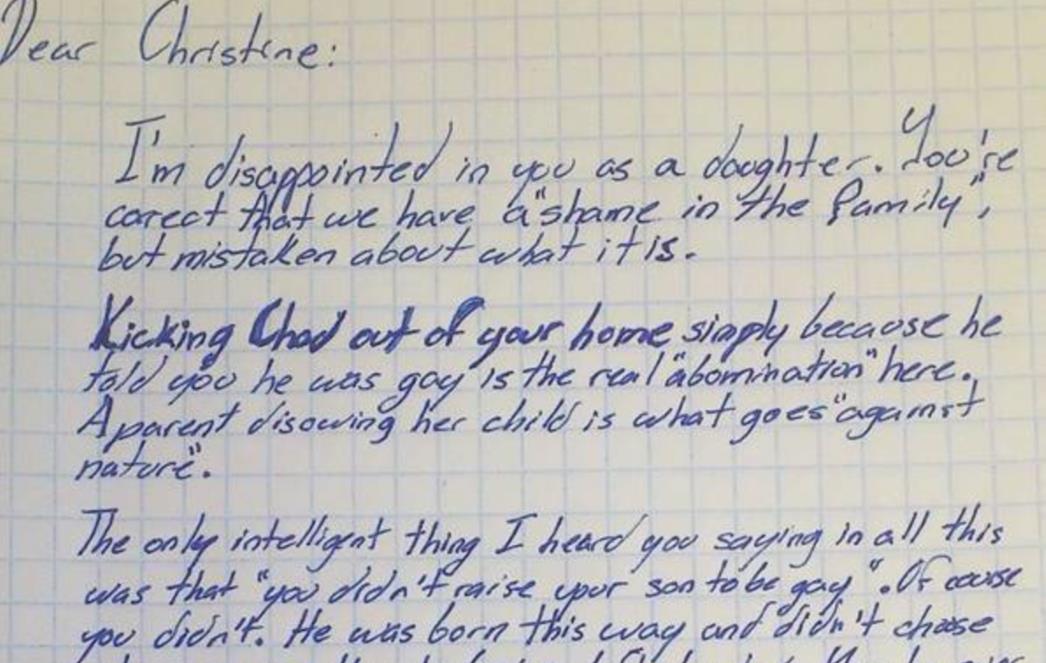 Dear Christine:
I'm disappointed in you as a daughter. You're
corect that we have a "shame in the family",
but mistaken about what it is.
Kicking Chad out of your home simply because he
told you he was gay is the real "abomination" here.
A parent disowing her child is what goes "against
nature".
The only intelligent thing I heard you saying in all this
was that "you didn't raise your son to be gay". Of course
you didn't. He was born this way and didn't choose